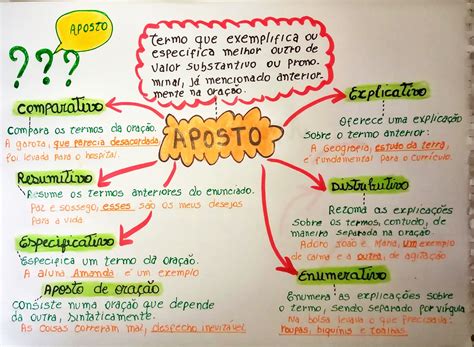 APOSTO
???
Termo que exemplifica ou
especifica melhor outro de
valor substantivo ou prono
minal, já mencionado anterior.
mente na oração.
APOSTO
Comparativo
Compara os termos da oração.
A garota, que parecia desacordada
foi levada para o hospital.
Resumitivo
Resume os termos anteriores do enunciado.
Paz e sossego, esses são os meus desejos
Para a vida
Especificativo
Especifica um termo da oração.
A aluna Amanda é um exemplo
Aposto de oração
Consiste numa oração que depende
da outra, sintaticamente.
As coisas correram mal, desfecho inevitável
Explicativo
Oferece uma explicação
sobre o termo anterior:
A Geografia, estudo da terra,
é fundamental para o currículo.
Distributivo
Retoma as explicações
sobre os termos, contudo, de
maneira separada na oração.
Adoro João e Maria, um exemplo
de calma e a outra, de agitação
Enumerativo
Enumera as explicações sobre
o termo, sendo separado por vírgula
Na bolsa levava o que precisava:
roupas, biquínis e toalhas.